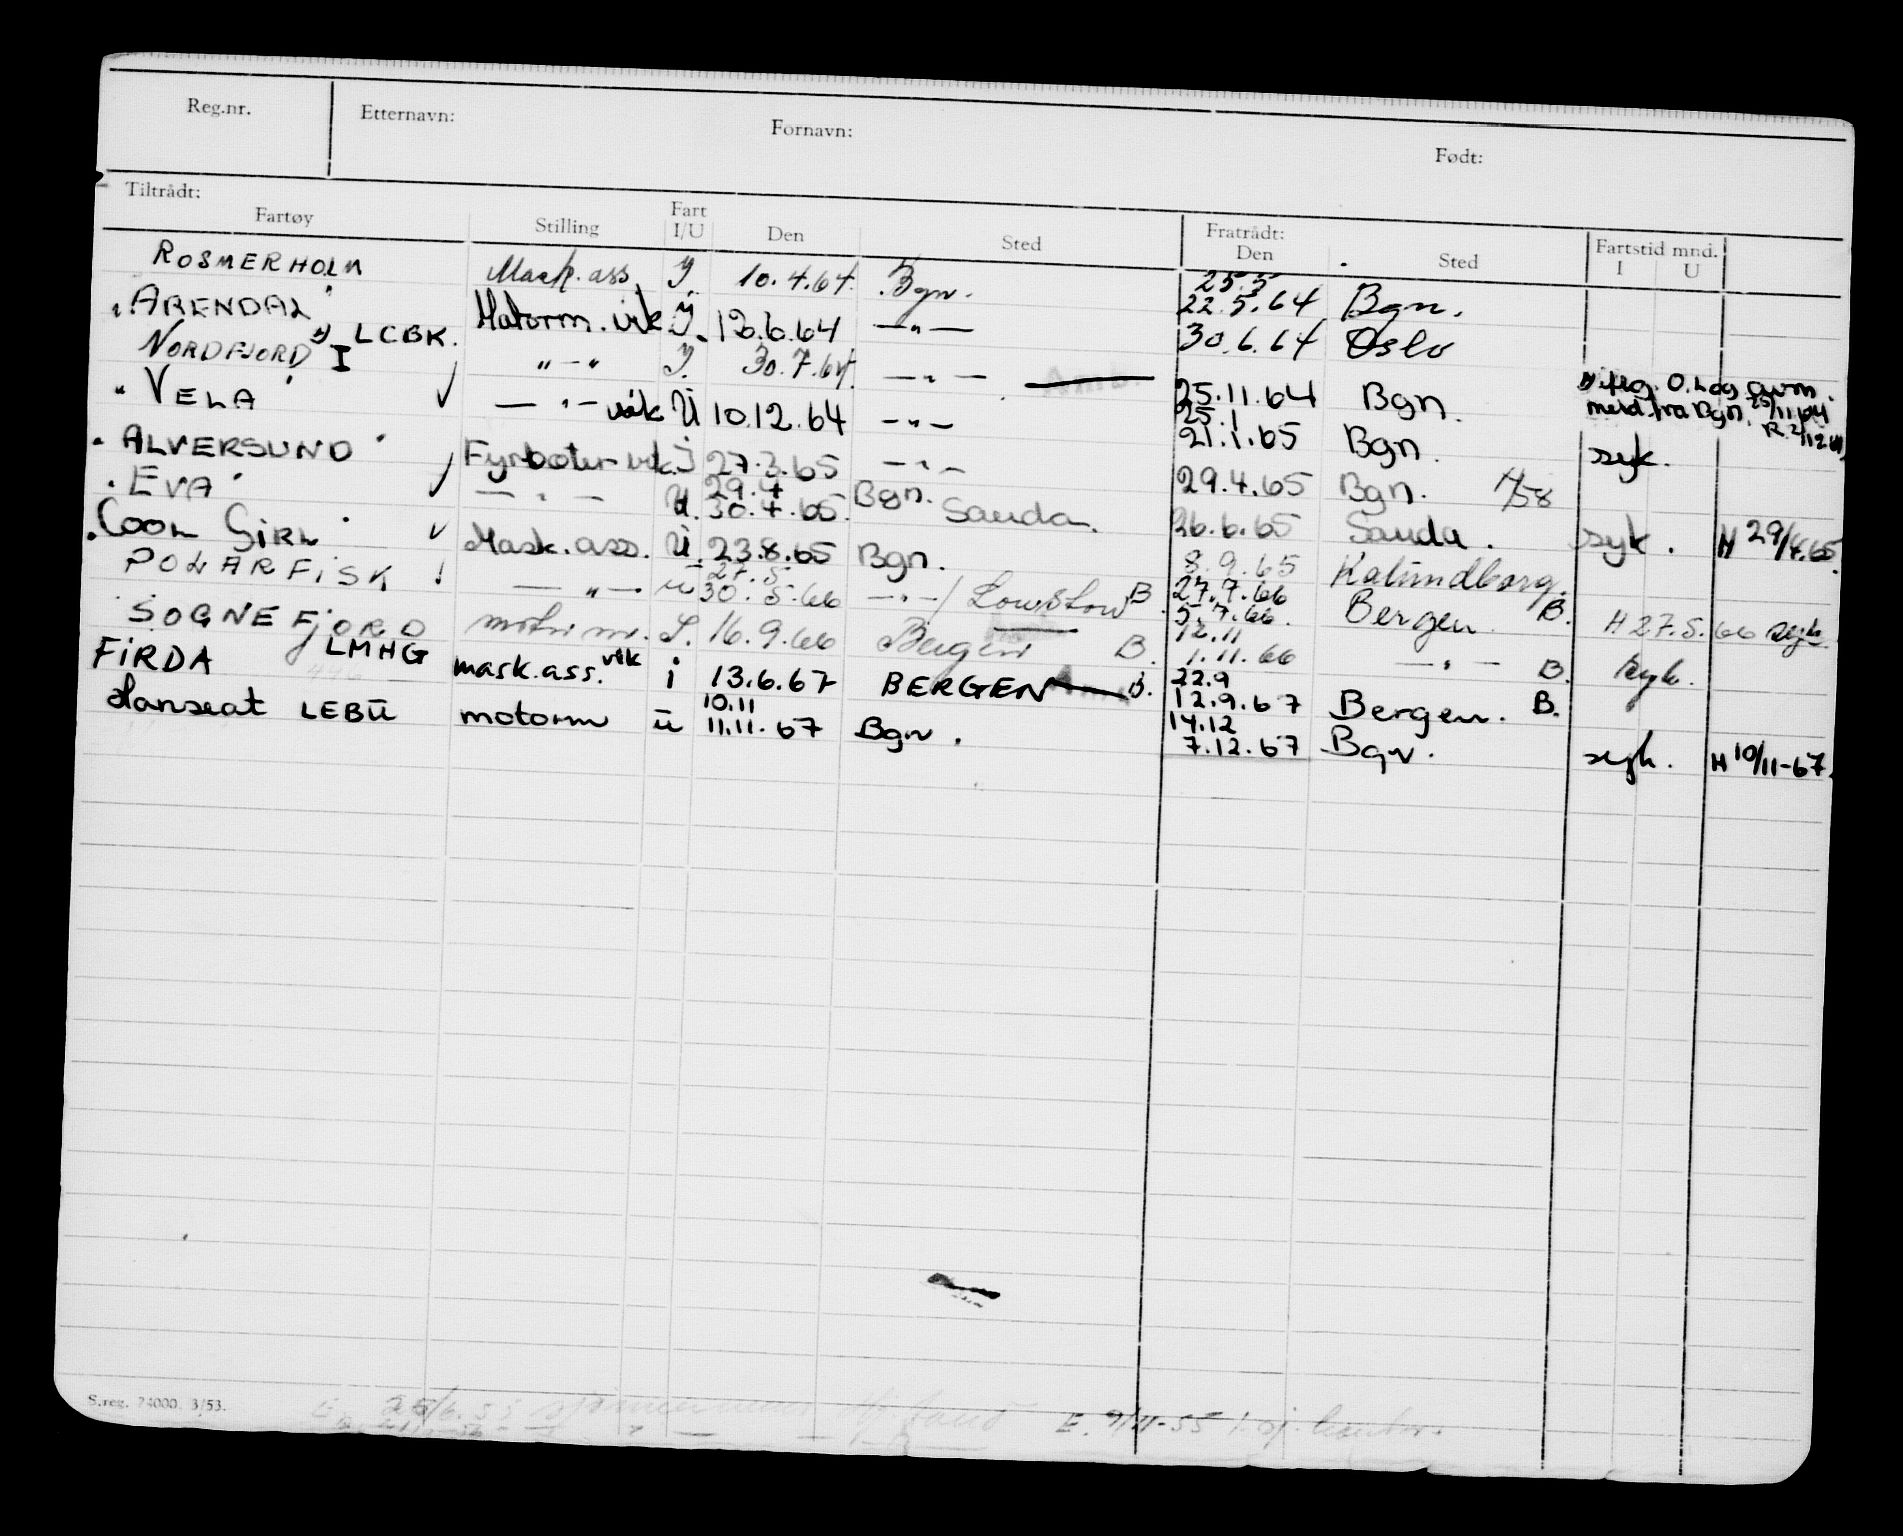 Reg.nr. Etternavn: Fornavn: Født:
Tiltrådt: Fratrådt: Fartstid mnd.
Fartøy Stilling Fart I/U Den Sted Den Sted I U
ROSMERHOLM Mask. ass. I. 10.4.64. Bgn. 25.5 22.5.64 Bgn.
"ARENDAL" Motorm. vik I. 12.6.64 —"— 30.6.64 Oslo
NORDFJORD I *) LCBK. "—" I. 30.7.64. —"— 25.11.64 Bgn. *) iflg. O. Log avm.
meld. fra Bgn. 25/11 64
R. 2/12 64
"VELA" ✓ —"— vik U 10.12.64 —"— 25.1 21.1.65 Bgn. syk.
"ALVERSUND" Fyrbøter vik. I 27.3.65 —"— 29.4.65 Bgn. H/58
"EVA" ✓ —"— U. 29.4 30.4.65. Bgn. Sauda. 26.6.65 Sauda. syk. H 29/4.65.
"COOL GIRL" ✓ Mask. ass. U. 23.8.65 Bgn. 8.9.65 Kalundborg.
POLARFISK ! —"— U 27.5. 30.5.66 —"—/ B. 27.7.66 5.7.66. Bergen B. H 27.5.66 syk.
SOGNEFJORD motorm. I. 16.9.66 Bergen B. 12.11 1.11.66 —"— B. syk.
FIRDA LMHG mask.ass. vik i 13.6.67 BERGEN B. 22.9 12.9.67 Bergen. B.
Hanseat LEBU motorm u 10.11 11.11.67 Bgn. 14.12 7.12.67 Bgn. syk. H 10/11-67.
S.reg. 24000. 3/53.
E. 9/11-55